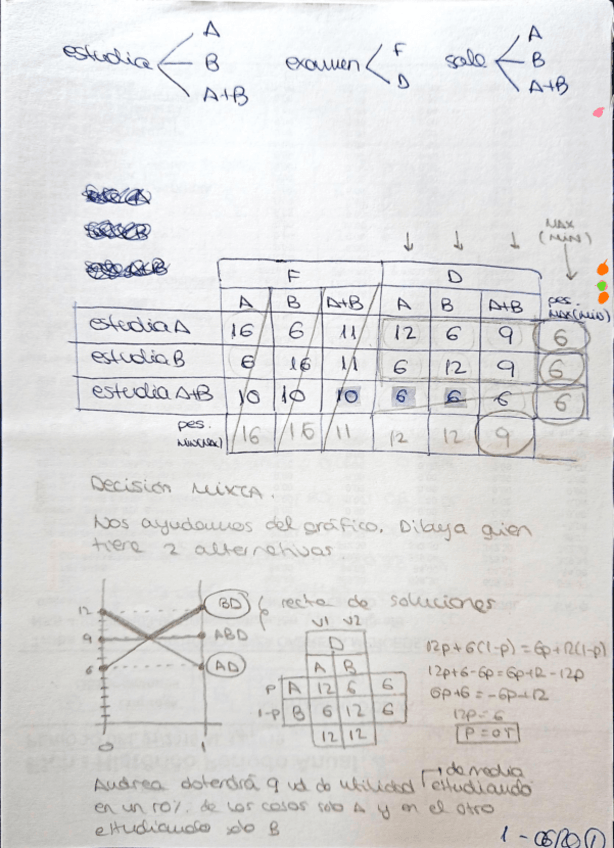 A
estudia B
A+B
examen F
D
sale A
B
A+B
MAX
(MIN)
F D
A B A+B A B A+B pes. MAX(MIN)
estudia A 16 6 11 12 6 9 6
estudia B 6 16 11 6 12 9 6
estudia A+B 10 10 10 6 6 6 6
pes. 16 16 11 12 12 9
Decisión MIXTA.
Nos ayudamos del gráfico. Dibuja quien
tiene 2 alternativas
12 BD recta de soluciones
9 ABD
6 AD
0 1
V1 V2
D
A B
P A 12 6 6
1-P B 6 12 6
12 12
12p+6(1-p)=6p+12(1-p)
12p+6-6p=6p+12-12p
6p+6=-6p+12
12p=6
P=0'5
Andrea obtendrá 9 ud de utilidad de media estudiando
en un 50% de los casos solo A y en el otro
estudiando solo B